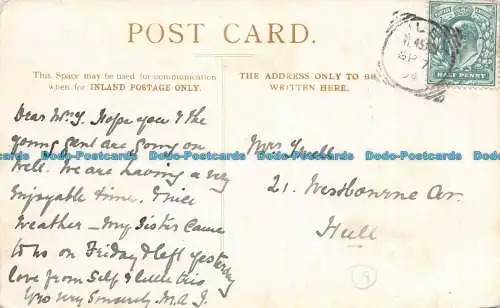 POST CARD.
This Space may be used for communication
when for INLAND POSTAGE ONLY.
THE ADDRESS ONLY TO BE
WRITTEN HERE.
HALF PENNY
Dear Mrs Y. Hope you & the
young gent are going on
well. We are having a very
enjoyable time. & nice
weather – My Sister Came
to us on Friday & left yesterday
love from Self & little
Yrs very Sincerely. M.A.
Mrs
21. Westbourne Av.
Hull
Dodo-Postcards Dodo-Postcards Dodo-Postcards Dodo-Postcards